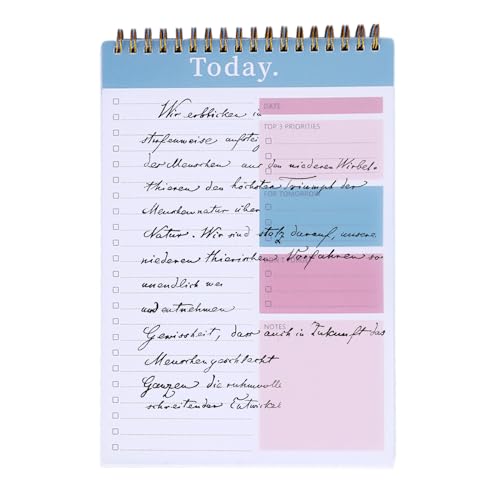 Today.
DATE
TOP 3 PRIORITIES
FOR TOMORROW
NOTES
Wir erblicken in
stufenweise aufsteig
der Menschen aus den niederen Wirbel-
thieren den höchsten Triumph der
Menschennatur über
Natur. Wir sind stolz darauf, unsere
niederen thierischen Vorfahren so
unendlich wei
und entnehmen
Gewissheit, dass auch in Zukunft das
Menschengeschlecht
Ganzen die ruhmvolle
schreitender Entwickel